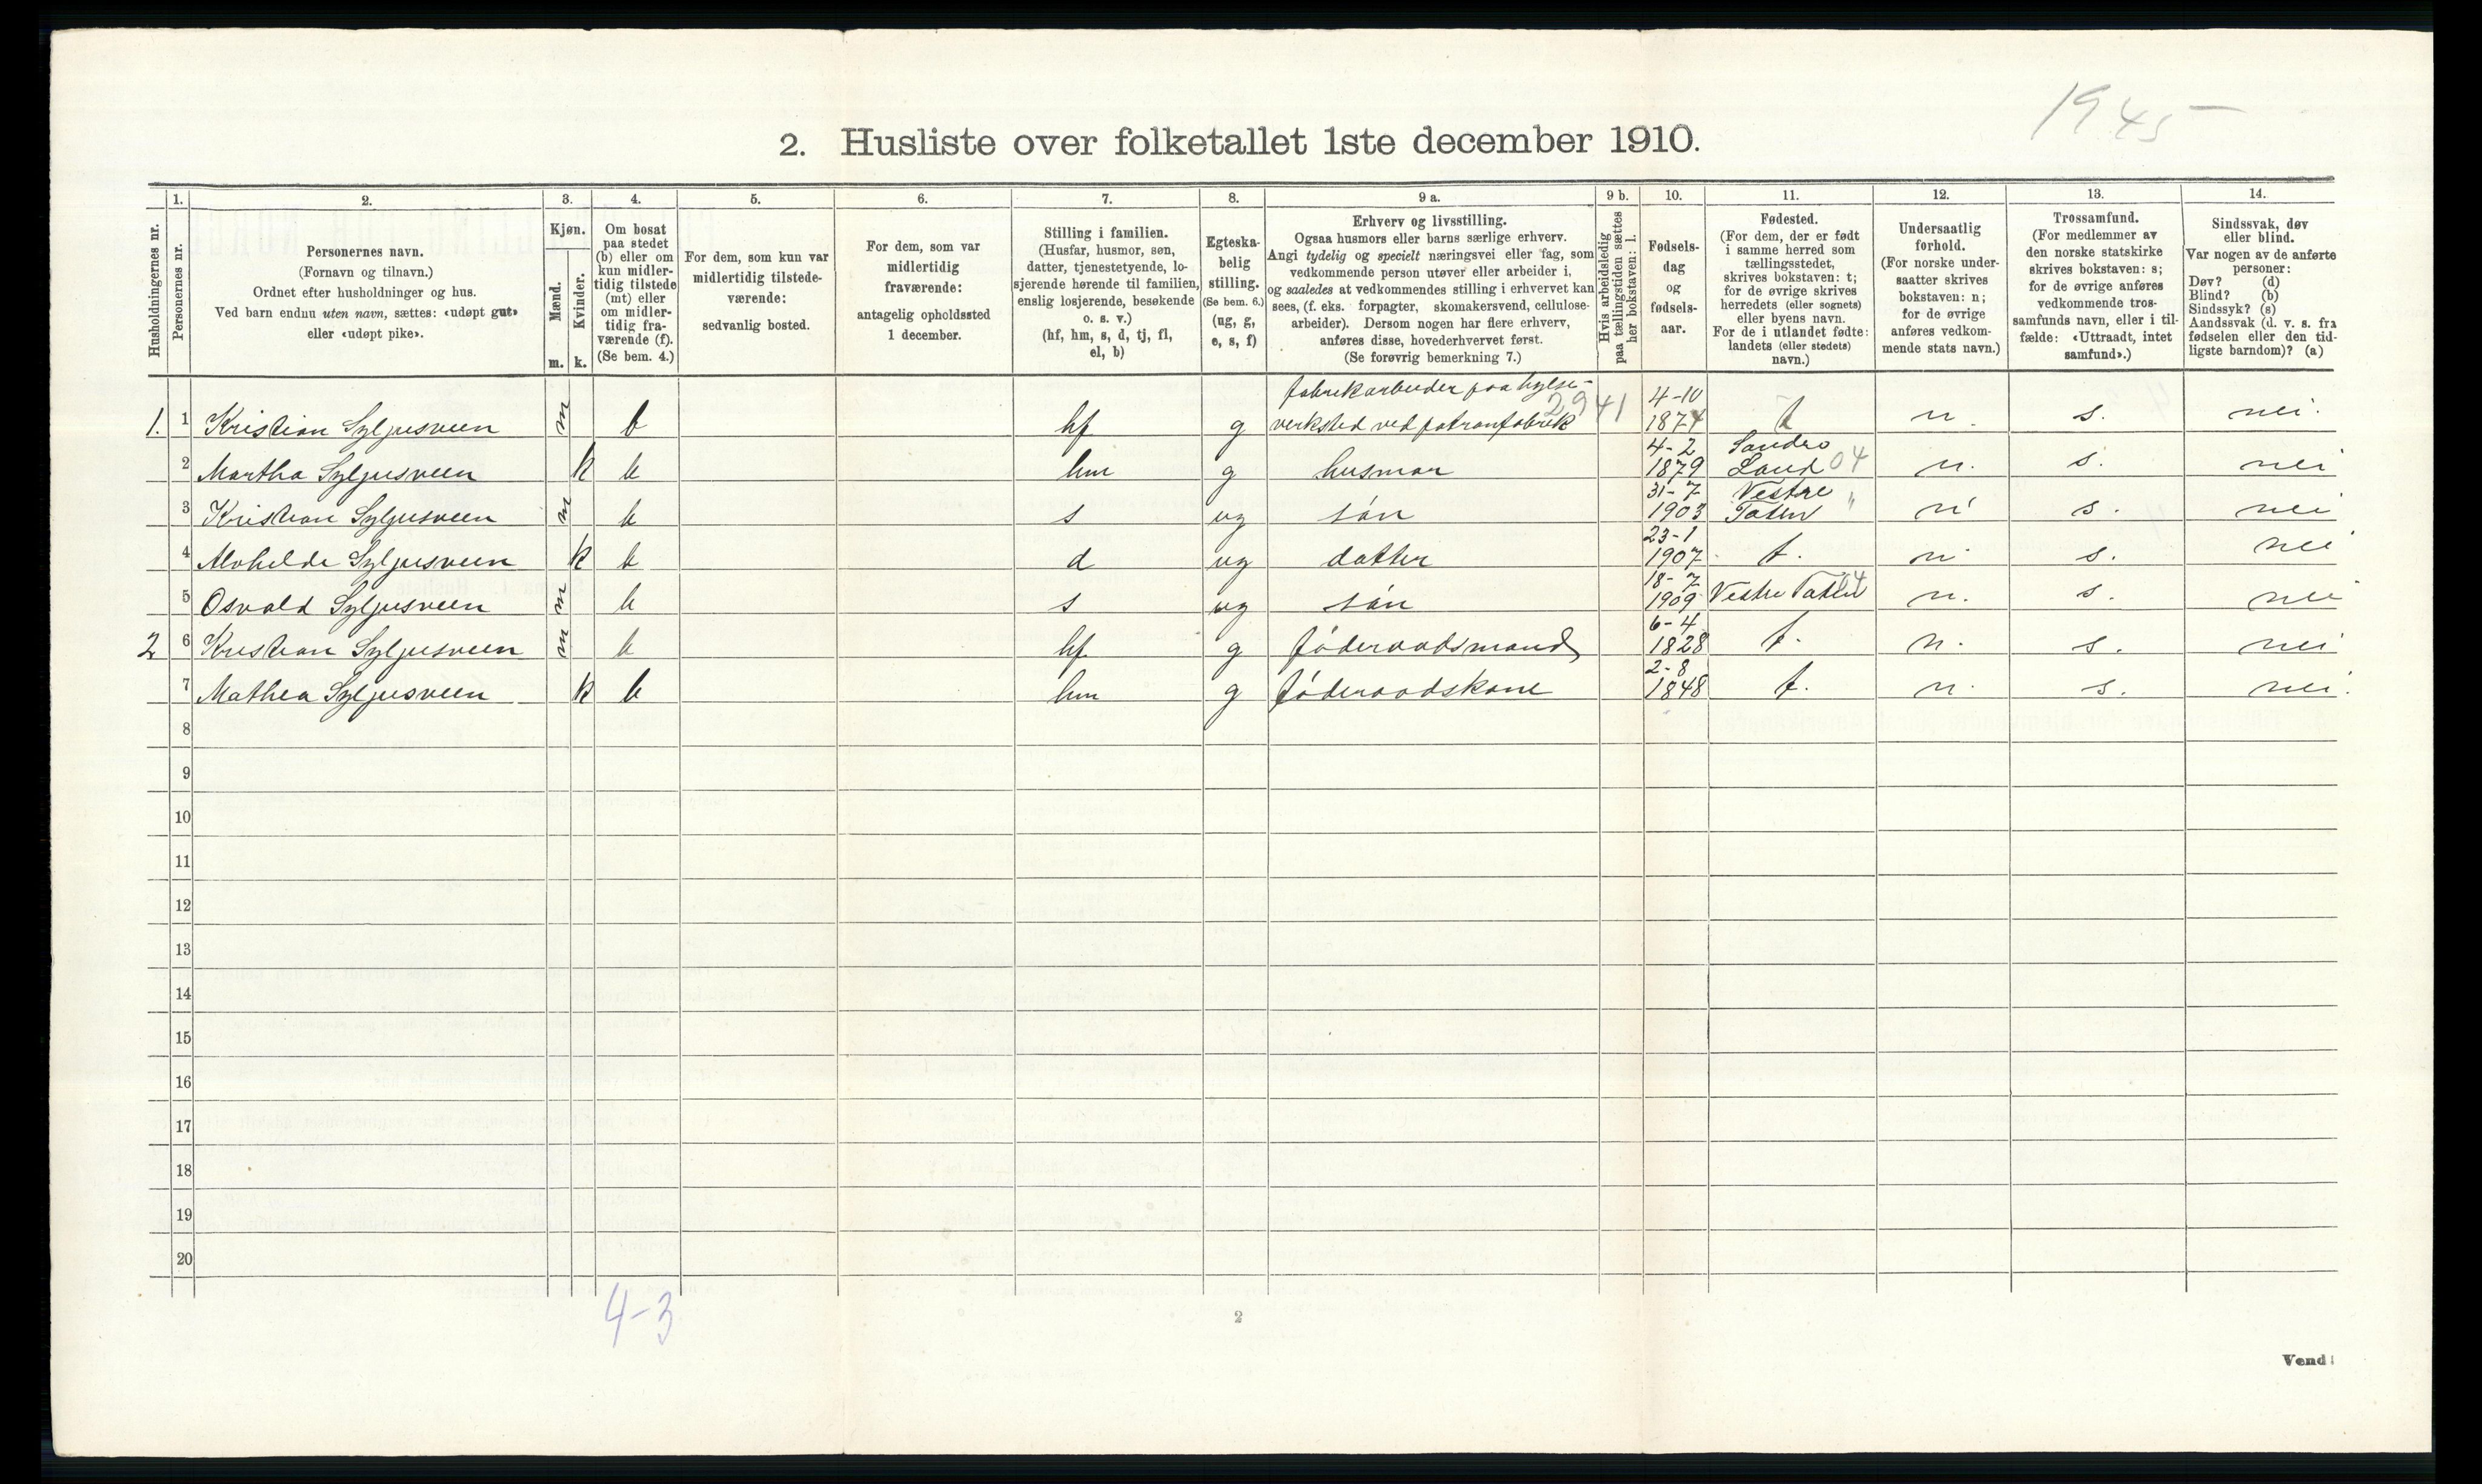 1945-
2. Husliste over folketallet 1ste december 1910.
1. 2. 3. 4. 5. 6. 7. 8. 9 a. 9 b. 10. 11. 12. 13. 14.
Husholdningernes nr.
Personernes nr.
Personernes navn.
(Fornavn og tilnavn.)
Ordnet efter husholdninger og hus.
Ved barn endnu uten navn, sættes: «udøpt gut»
eller «udøpt pike».
Kjøn.
Mænd.
Kvinder.
m. k.
Om bosat
paa stedet
(b) eller om
kun midler-
tidig tilstede
(mt) eller
om midler-
tidig fra-
værende (f).
(Se bem. 4.)
For dem, som kun var
midlertidig tilstede-
værende:
sedvanlig bosted.
For dem, som var
midlertidig
fraværende:
antagelig opholdssted
1 december.
Stilling i familien.
(Husfar, husmor, søn,
datter, tjenestetyende, lo-
sjerende hørende til familien,
enslig losjerende, besøkende
o. s. v.)
(hf, hm, s, d, tj, fl,
el, b)
Egteska-
belig
stilling.
(Se bem. 6.)
(ug, g,
e, s, f)
Erhverv og livsstilling.
Ogsaa husmors eller barns særlige erhverv.
Angi tydelig og specielt næringsvei eller fag, som
vedkommende person utøver eller arbeider i,
og saaledes at vedkommendes stilling i erhvervet kan
sees, (f. eks. forpagter, skomakersvend, cellulose-
arbeider). Dersom nogen har flere erhverv,
anføres disse, hovederhvervet først.
(Se forøvrig bemerkning 7.)
Hvis arbeidsledig
paa tællingstiden sættes
her bokstaven: l.
Fødsels-
dag
og
fødsels-
aar.
Fødested.
(For dem, der er født
i samme herred som
tællingsstedet,
skrives bokstaven: t;
for de øvrige skrives
herredets (eller sognets)
eller byens navn.
For de i utlandet fødte:
landets (eller stedets)
navn.)
Undersaatlig
forhold.
(For norske under-
saatter skrives
bokstaven: n;
for de øvrige
anføres vedkom-
mende stats navn.)
Trossamfund.
(For medlemmer av
den norske statskirke
skrives bokstaven: s;
for de øvrige anføres
vedkommende tros-
samfunds navn, eller i til-
fælde: «Uttraadt, intet
samfund».)
Sindssvak, døv
eller blind.
Var nogen av de anførte
personer:
Døv? (d)
Blind? (b)
Sindssyk? (s)
Aandssvak (d. v. s. fra
fødselen eller den tid-
ligste barndom)? (a)
fabrikarbeider paa hylse- 4-10
1. 1 Kristian Syljusveen m b hf g verksted ved patronfabrik 2941 1874 t n. s. nei.
4-2 Søndre
2 Martha Syljusveen k b hm g husmor 1879 Land 04 n. s. nei
31-7 Vestre
3 Kristian Syljusveen m b s ug søn 1903 Toten " n s. nei
23-1
4 Alvhilde Syljusveen k b d ug datter 1907 t. n. s. nei
18-7
5 Osvald Syljusveen m b s ug søn 1909 Vestre Toten 04 n. s. nei
6-4
2 6 Kristian Syljusveen m b hf g føderaadsmand 1828 t. n. s. nei
2-8
7 Mathea Syljusveen k b hm g føderaadskone 1848 t. n. s. nei.
8
9
10
11
12
13
14
15
16
17
18
19
20
4-3
2
Vend!